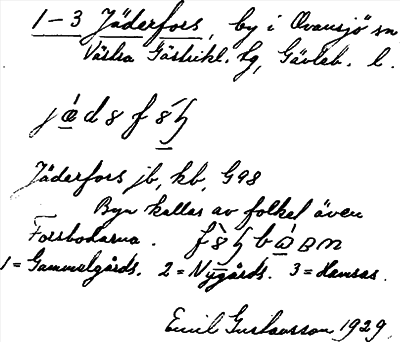 1-3 Jäderfors, by i Ovansjö sn
Västra Gästrikl. tg, Gävleb. l.
Jäderfors jb, kb, G98
Byn kallas av folket även
Forsbodarna.
1 = Gammelgårds. 2 = Nygårds. 3 = Hamras.
Emil Gustavsson 1929.